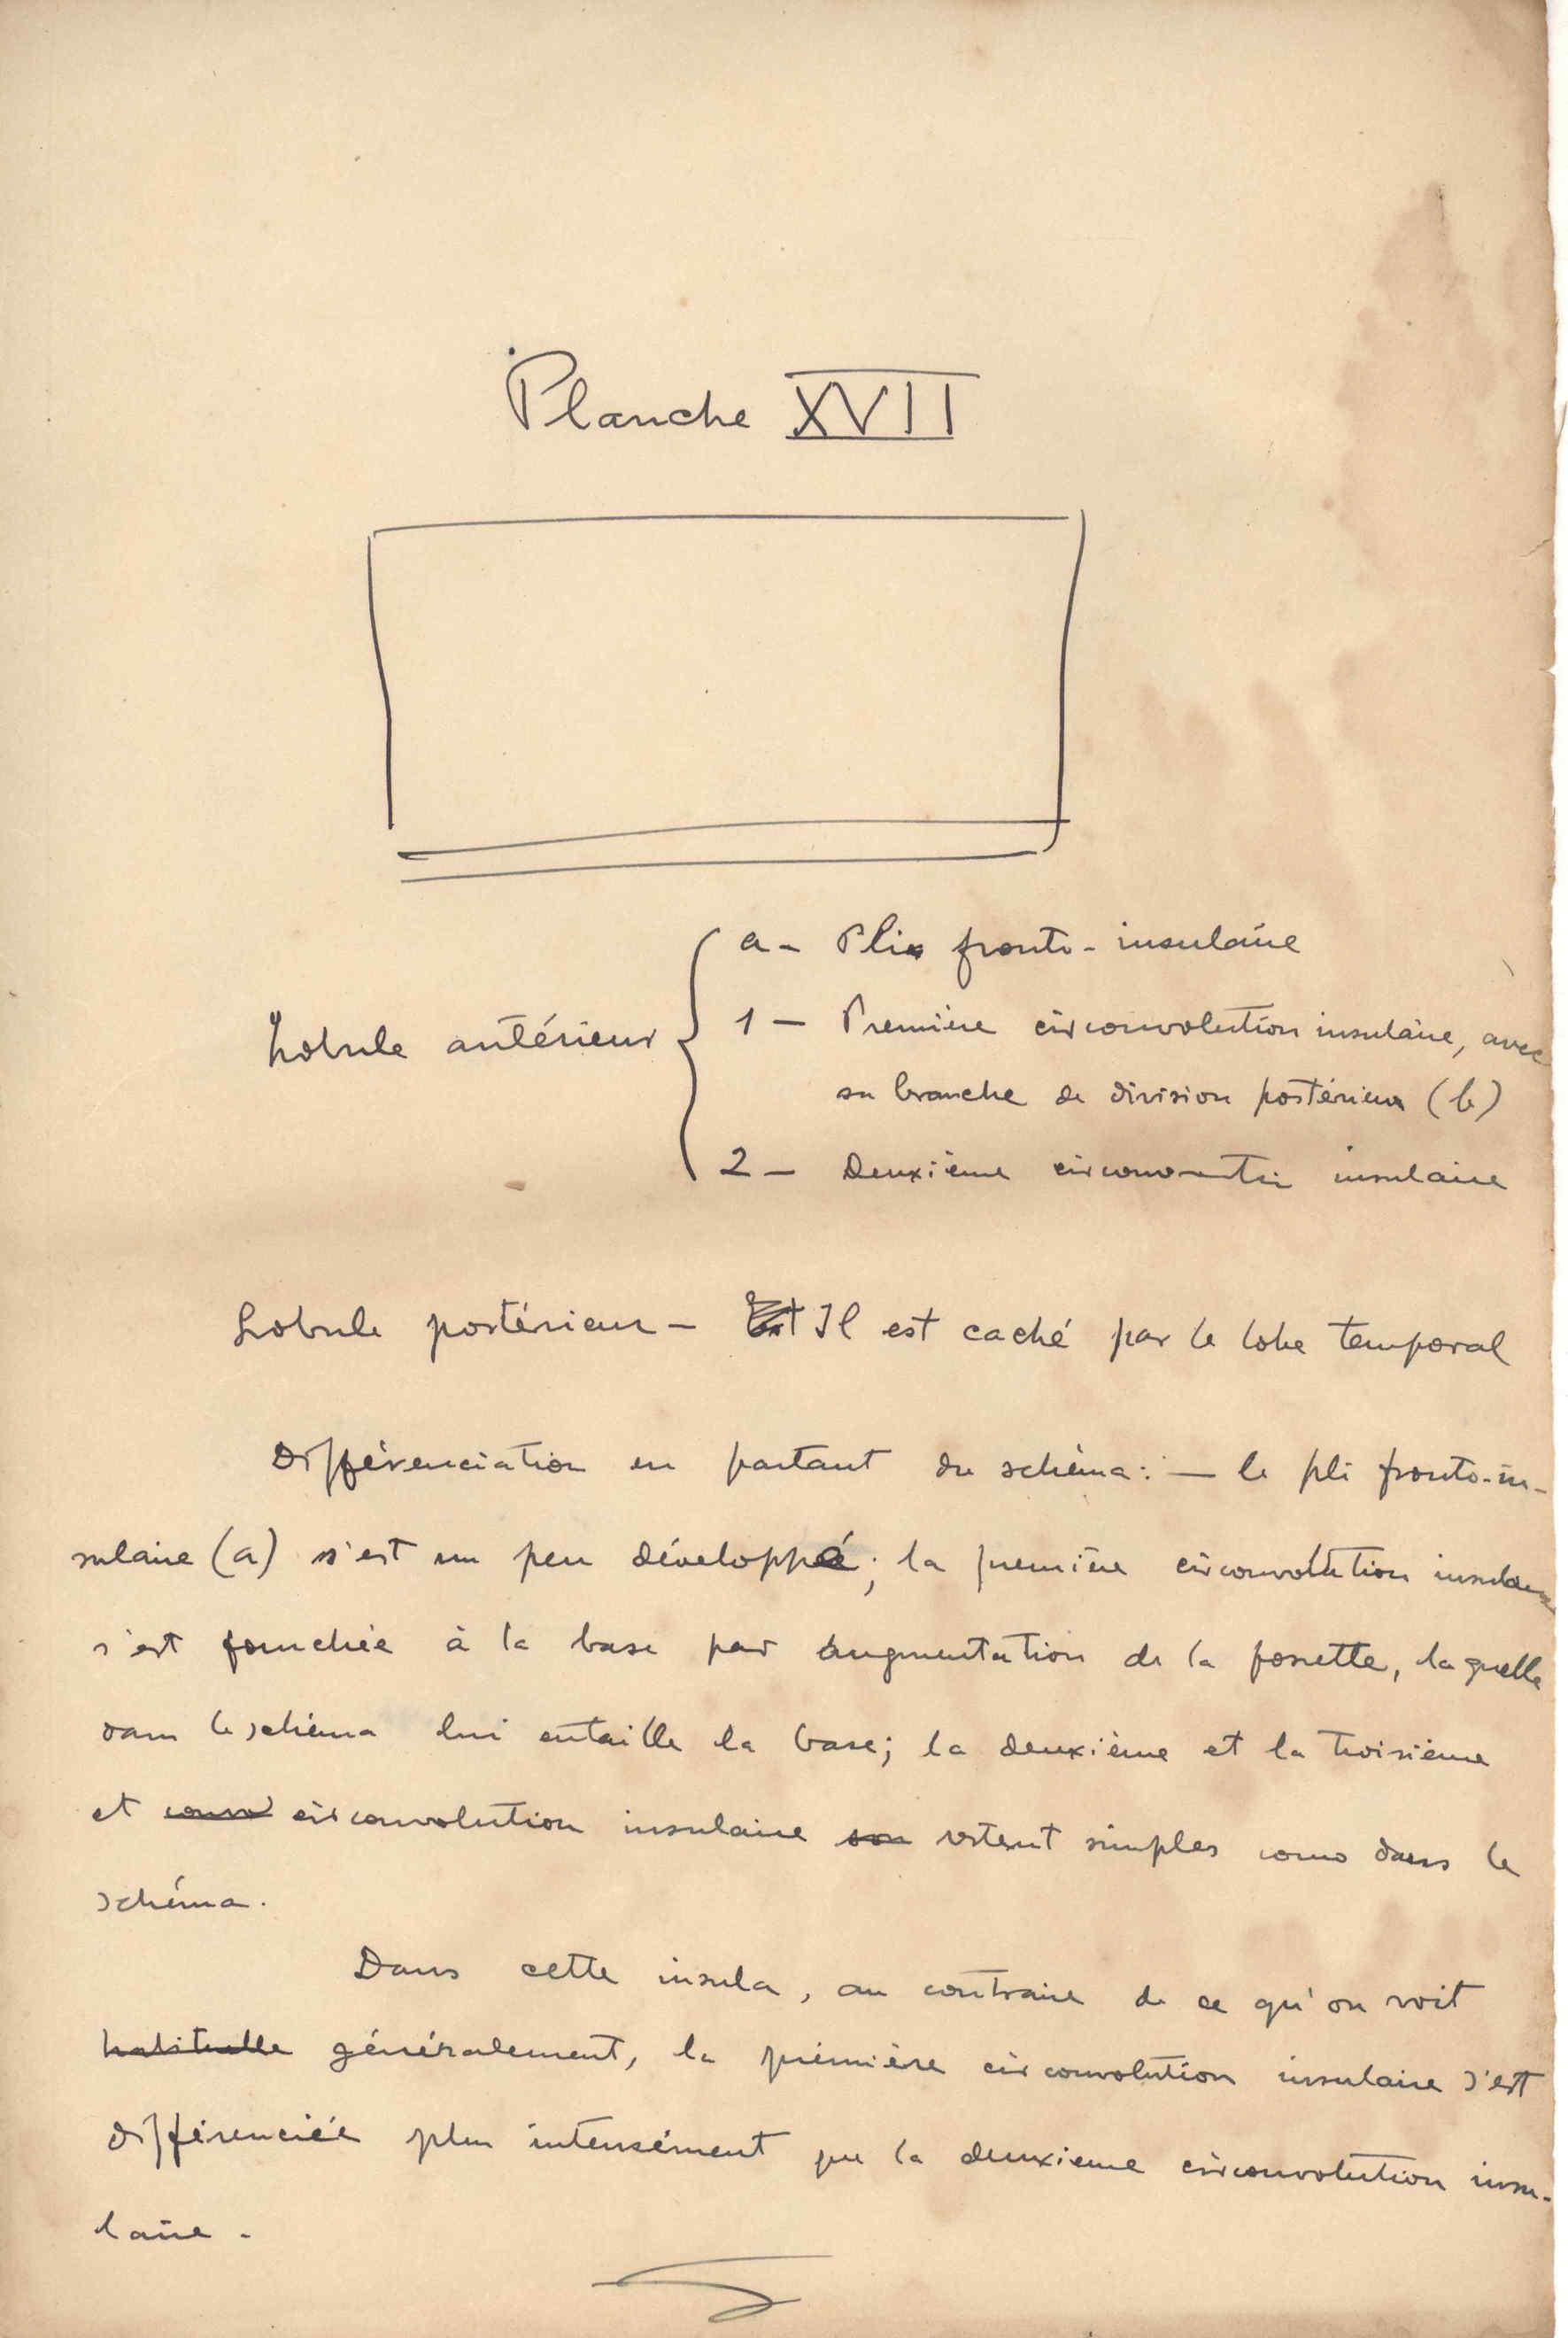 Planche XVII
a - Pli fronto-insulaire
Lobule antérieur
1 - Première circonvolution insulaire, avec
sa branche de division postérieur (b)
2 - Deuxième insulaire
Lobule postérieur - Il est caché par le lobe temporal
Différenciation en partant du schéma: - le pli fronto-in-
sulaire (a) s'est un peu développé; la première circonvolution insulaire
s'est fourchée à la base par augmentation de la fossette, laquelle
dans le schéma lui entaille la base; la deuxième et la troisième
et circonvolution insulaire restent simples como dans le
schéma.
Dans cette insula, au contraire de ce qu'on voit
habituelle généralement, la première circonvolution insulaire s'est
différenciée plus intensément que la deuxieme circonvolution insu-
laire -